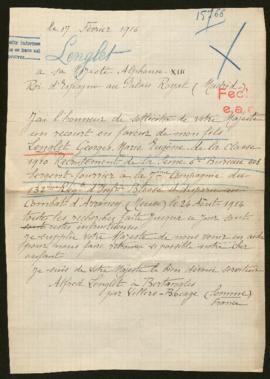 le 17 Février 1916
15766
Lenglet
a sa Majesté Alphonse XIII
Roi d'Espagne au Palais Royal (Madrid)
Fec
e.a.c.
J'ai l'honneur de solliciter de votre Majesté
un recourt en faveur de mon fils
Lenglet Georges Marie Eugène de la classe
1910 Recrutement de la Somme
Sergent fourrier à la 7ème Compagnie du
Blessé et disparu au
Combat d'Arrancy (Meuse) le 24 Août 1914
toutes les recherches faites jusqu'à ce jour sont
restées infructueuses
Je supplie votre Majesté de nous venir en aide
pour nous faire retrouver si possible notre cher
enfant
Je suis de votre Majesté le bien dévoué serviteur
Alfred Lenglet à Bertangles
par Villers-Bocage (Somme)
France